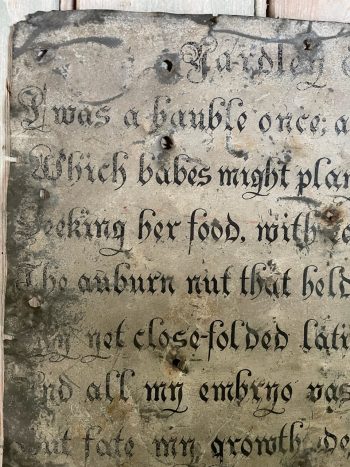 Yardley O
I was a bauble once; a
Which babes might play
Seeking her food, with e
The auburn nut that held
My yet close-folded lati
And all my embryo vas
But fate my growth de